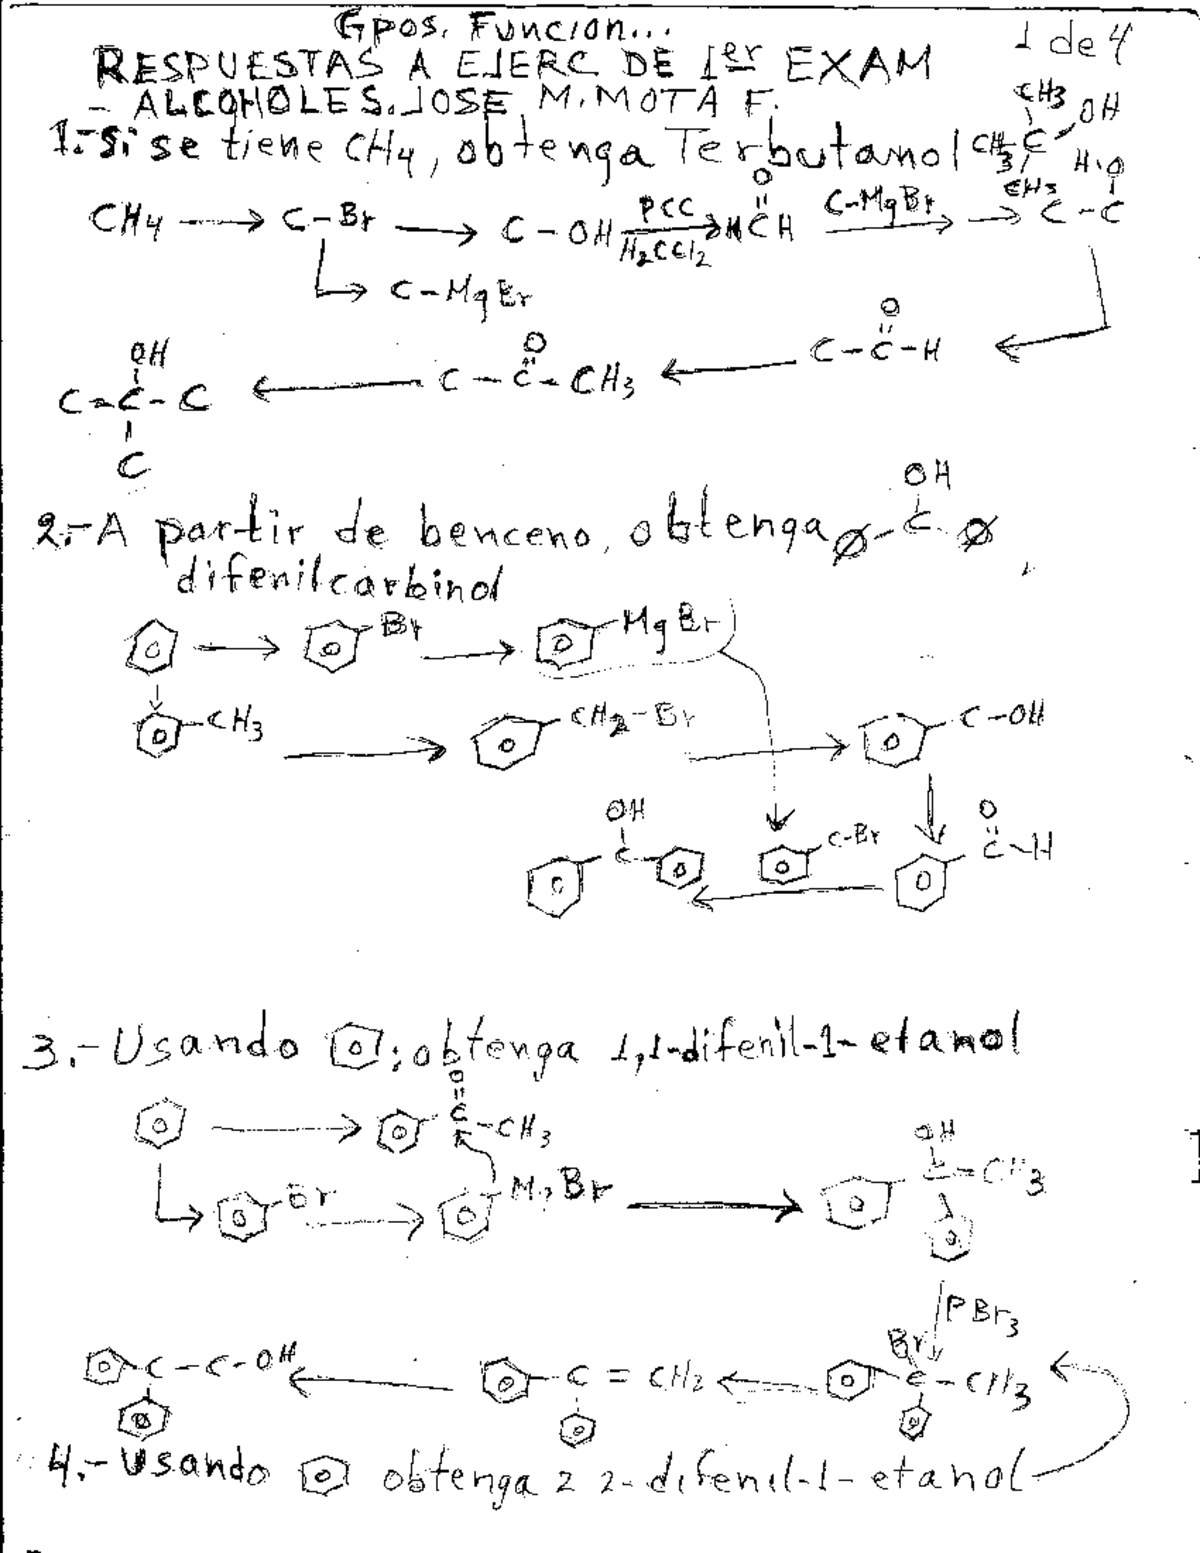 Gpos. Funcion...
1 de 4
RESPUESTAS A EJERC DE 1er EXAM
- ALCOHOLES. JOSE M. MOTA F.
1.- Si se tiene CH4, obtenga Terbutanol CH3 CH3 C OH CH3
CH4 C-Br C-OH PCC H2CCl2 O HCH C-MgBr H-O C-C
C-MgBr
OH C-C-C C O C-C-CH3 O C-C-H
2.- A partir de benceno, obtenga Ø-C-Ø OH
difenilcarbinol
Br MgBr
CH3 CH2-Br C-OH
OH C C-Br O C-H
3.- Usando : obtenga 1,1-difenil-1-etanol
O C-CH3
Br MgBr OH C-CH3
PBr3
C-C-OH C=CH2 Br C-CH3
4.- Usando obtenga 2 2-difenil-1-etanol